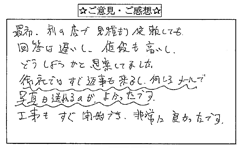 ☆ご意見・ご感想☆
最初、別の店で見積り依頼しても
回答は遅いし、値段も高いし、
どうしようかと思案してました。
御社ではすぐ返事も来るし、何しろメールで
写真も送れるのがよかったです。
工事もすぐ開始でき、非常に良かったです。